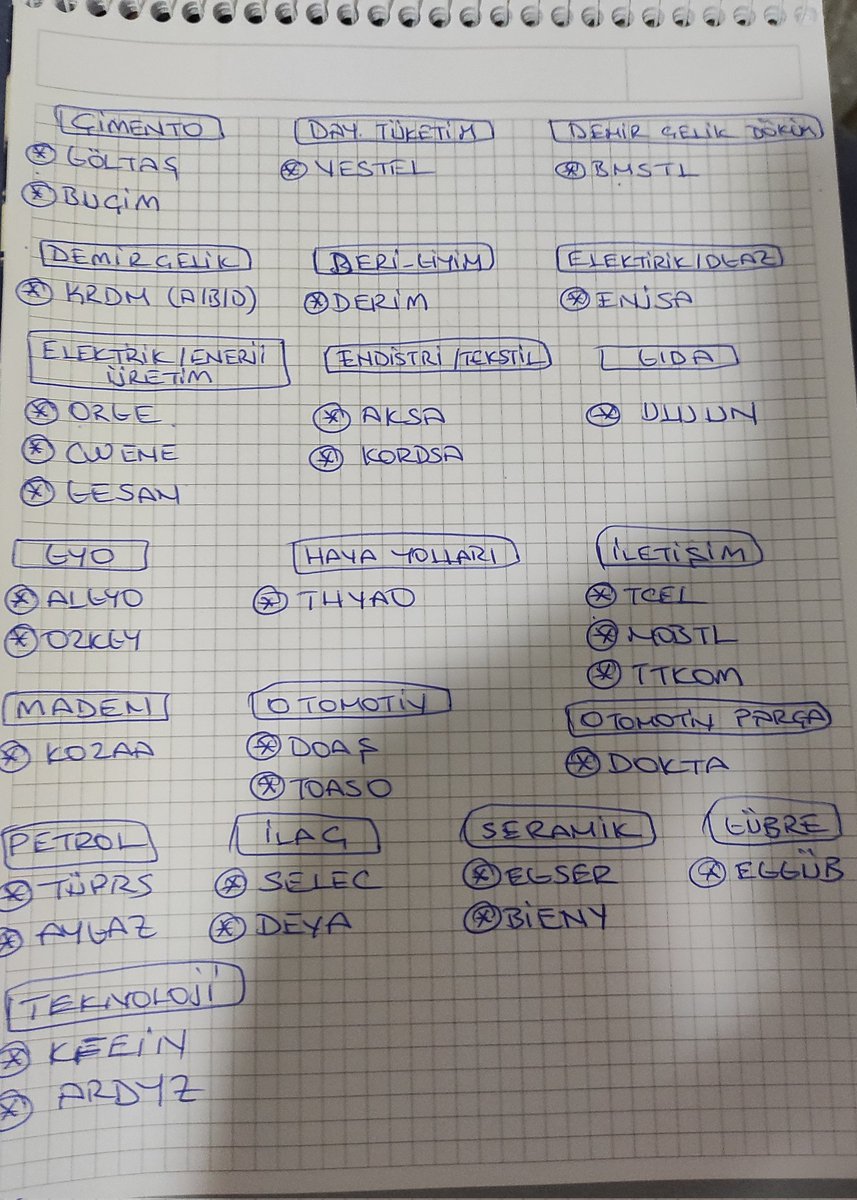 ÇİMENTO
GÖLTAŞ
BUÇİM
DAY. TÜKETİM
VESTEL
DEMİR ÇELİK DÖKÜM
BMSTL
DEMİR ÇELİK
KRDM (A/B/D)
DERİ-GİYİM
DERİM
ELEKTİRİK/DGAZ
ENJSA
ELEKTRİK/ENERJİ
ÜRETİM
ORGE
CWENE
GESAN
ENDİSTRİ/TEKSTİL
AKSA
KORDSA
GIDA
ULUUN
GYO
ALGYO
OZKGY
HAVA YOLLARI
THYAO
İLETİŞİM
TCEL
MOBTL
TTKOM
MADEN
KOZAA
OTOMOTİV
DOAŞ
TOASO
OTOMOTİV PARÇA
DOKTA
PETROL
TÜPRS
AYGAZ
İLAÇ
SELEC
DEVA
SERAMİK
EGSER
BİENY
GÜBRE
EGGÜB
TEKNOLOJİ
KFEİN
ARDYZ